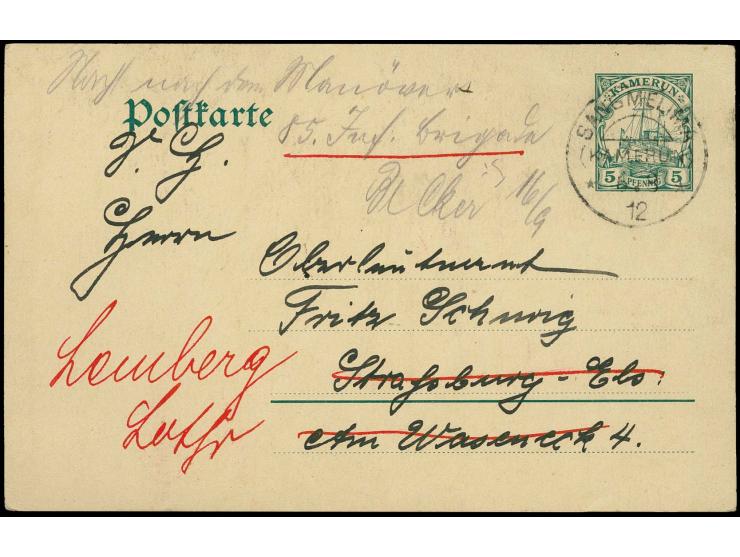 Nach nach dem Manöver
Postkarte
85. Inf. Brigade
16/9
KAMERUN
5 PFENNIG 5
SANGMELIMA
(KAMERUN)
12
Herrn
Oberleutnant
Fritz Schurig
Strassburg-Els.
Am Waseneck 4.
Lemberg
Lothr